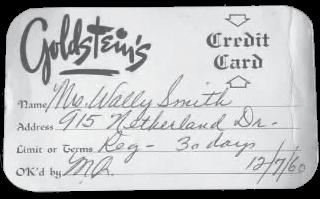 Goldstein's
Credit
Card
Name Mrs. Wally Smith
Address 915 Netherland Dr.
Limit or Terms Reg - 30 days
OK'd by M.R. 12/7/60